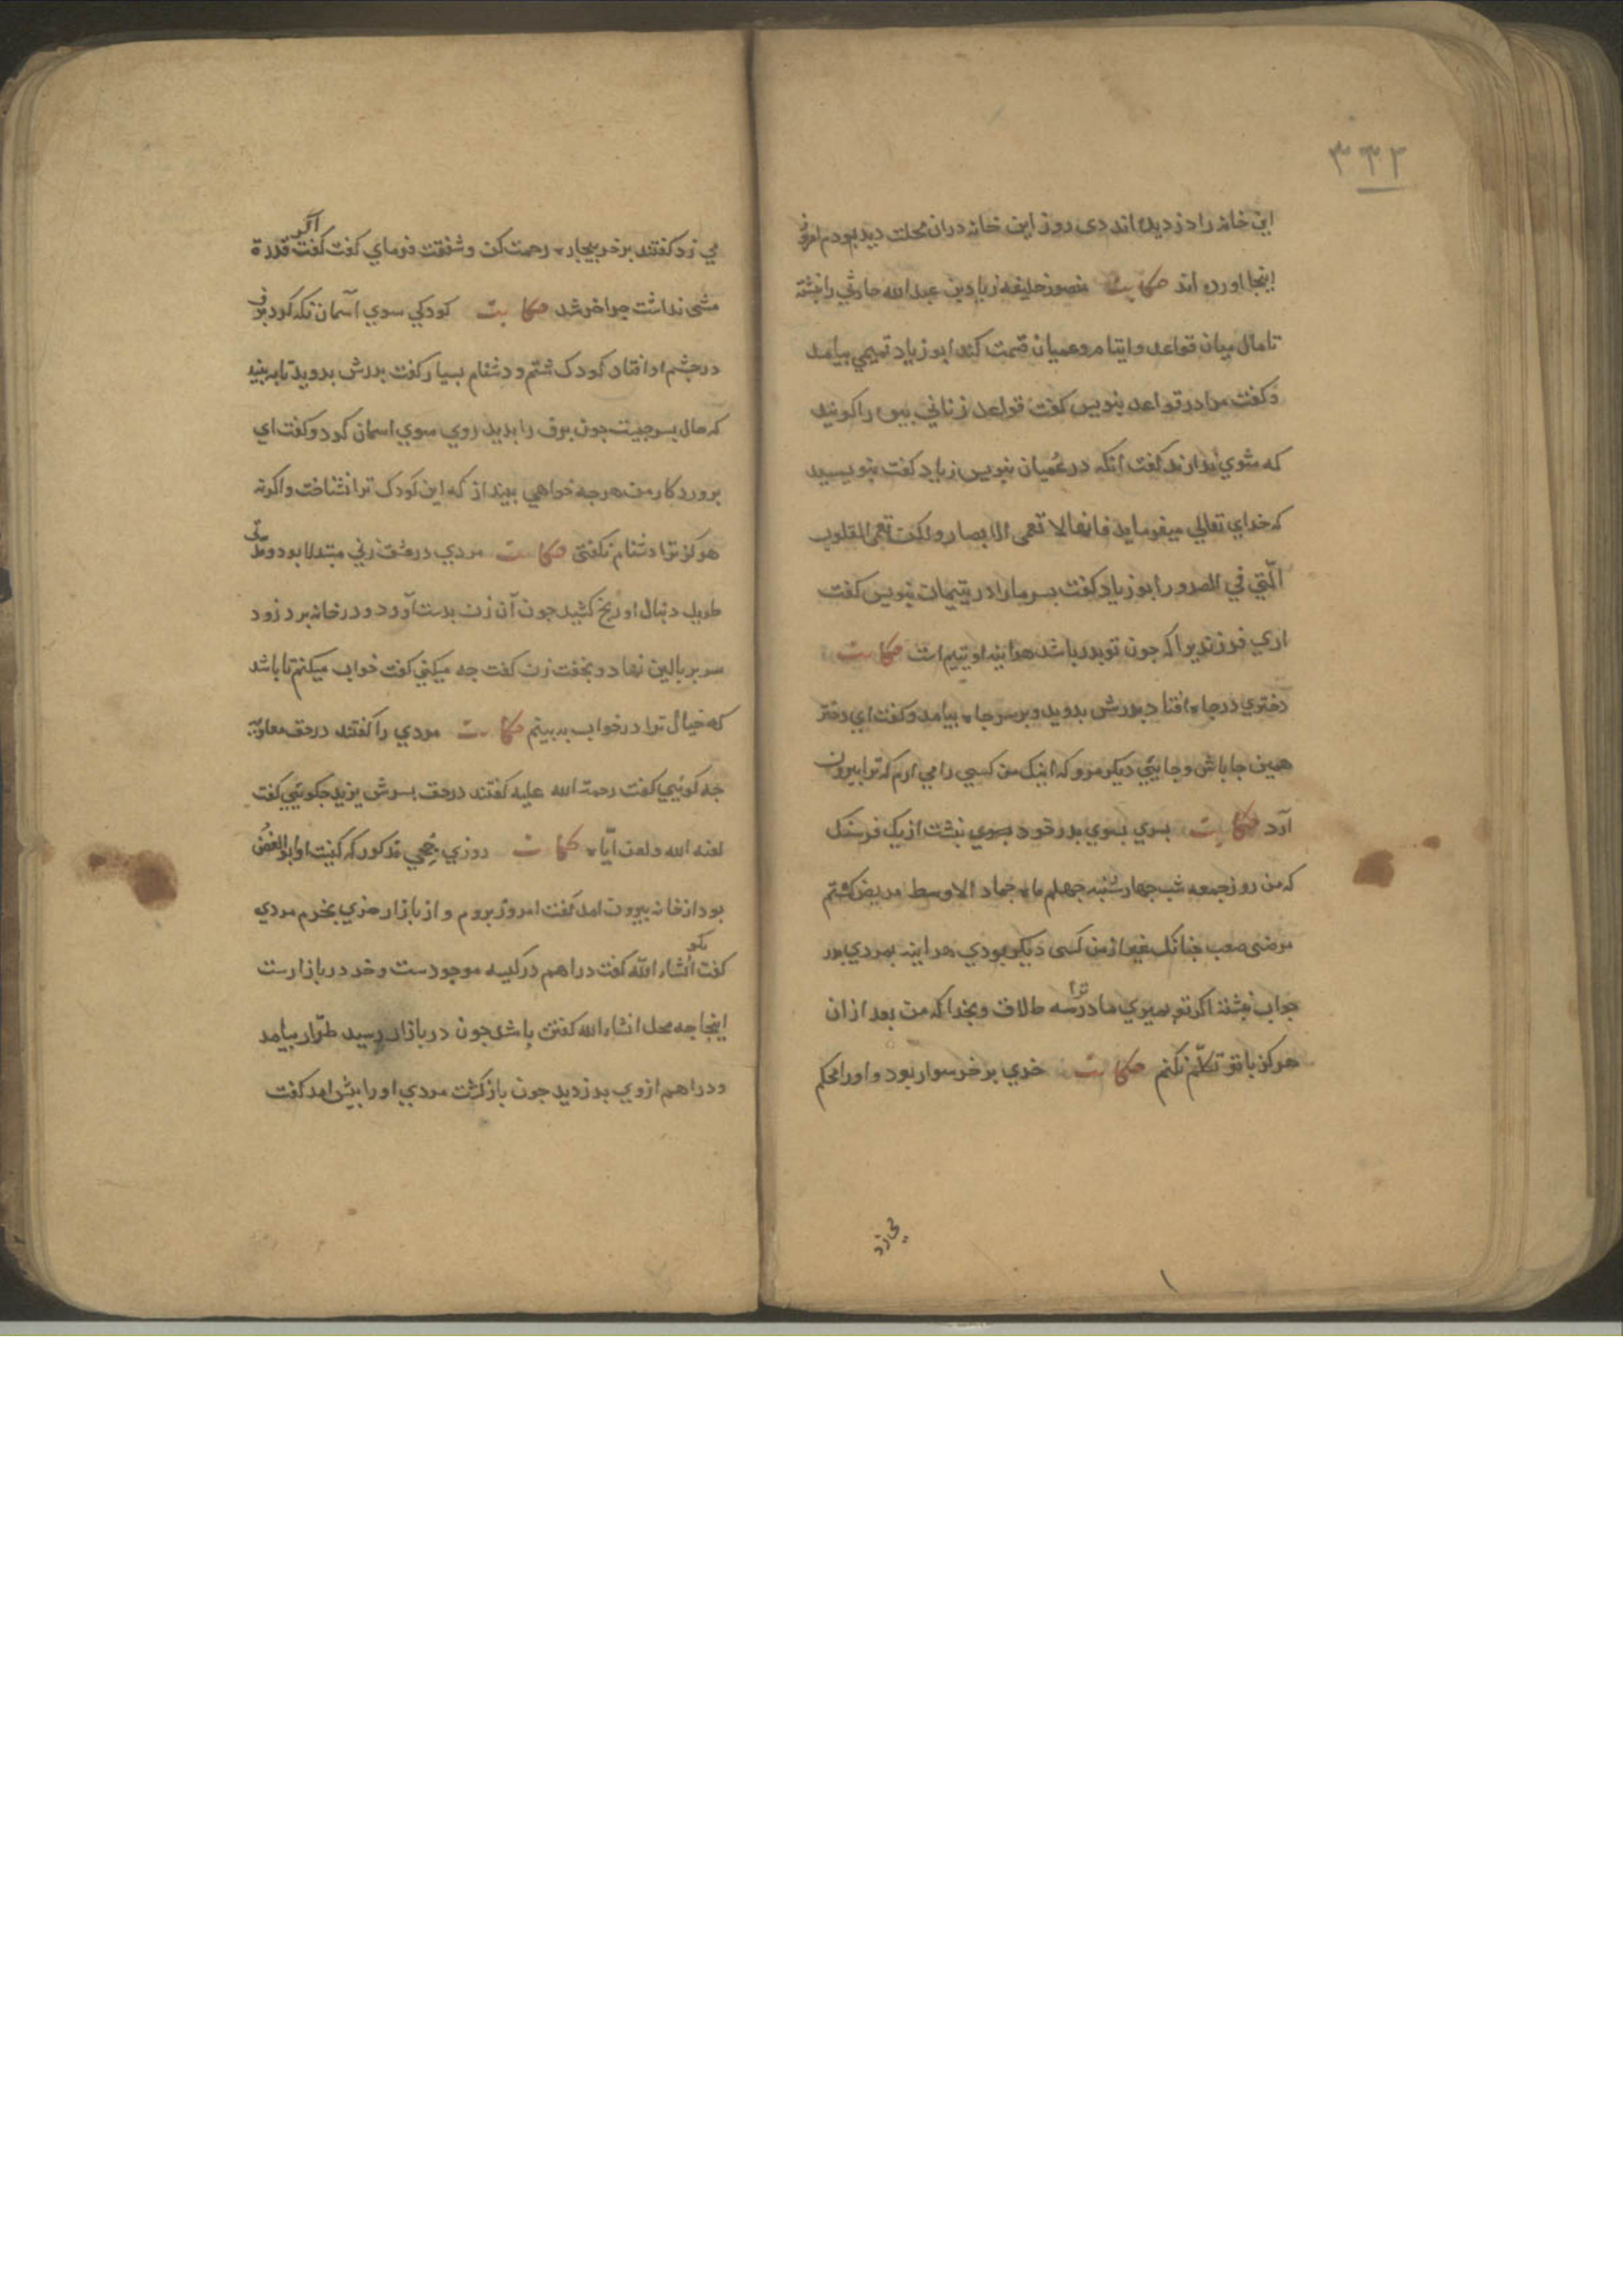 ۳۳۲
این خانه را دزدیده اند دی روز این خانه دران محلت دیده بودم امروز
اینجا اورده اند حکایت منصور خلیفه زیاد بن عبدالله حارثی را نبشته
تا مال میان قواعد و ایتام و عمیان قسمت کند ابو زیاد تمیمی بیامد
و کفت مرا در قواعد بنویس کفت قواعد زنانی بیوه را کویند
که شوی ندارند کفت انکه در عمیان بنویس زیاد کفت بنویسید
که خدای تعالی میفرماید فانها لا تعمی الابصار ولکن تعمی القلوب
الّتی فی الصدور ابو زیاد کفت پسر مرا در یتیمان بنویس کفت
اری فرزندیرا که چون تو پدر باشد هراینه او یتیم است حکایت
دختری در چاه افتاد پدرش بدوید و بر سر چاه بیامد و کفت ای دختر
همین جا باش و جایی دیکر مرو که اینک من کسی را می ارم که ترا بیرون
آرد حکایت پسری بسوی پدر خود بسوی نبشت از یک فرسنک
که من روز جمعه شب چهارشنبه چهلم ماه جماد الاوسط مریض کشتم
مرضی صعب چنانک بغیر از من کسی دیکر بودی هراینه بمردی پدر
جواب نبشت اکر تو بمیری مادرت ترا سه طلاق و بخدا که من بعد ازان
هرکز با تو تکلّم نکنم حکایت خری بر خر سوار بود و او را محکم
می زد
می زد کفتند بر خر بیچاره رحمت کن و شفقت فرمای کفت کفت اکر قدرة
مشی نداشت چرا خر شد حکایت کودکی سوی آسمان نکه کرد برف
در چشم او افتاد کودک شتم و دشنام بسیار کفت پدرش بدوید تا به بیند
که حال پسر چیست چون برف را بدید روی سوی اسمان کرد و کفت ای
پروردکار من هرچه خواهی بینداز که این کودک ترا نشناخت و اکرنه
هرکز ترا دشنام نکفتی حکایت مردی در عشق زنی مبتلا بود و مدّتی
طویل دنبال او رنج کشید چون آن زن بدست آورد و در خانه برد زود
سر بر بالین نهاد و بخفت زن کفت چه میکنی کفت خواب میکنم تا باشد
که خیال ترا در خواب به بینم حکایت مردی را کفتند در حق معاویّه
چه کوئیی کفت رحمة الله علیه کفتند در حق پسرش یزید چکوئیی کفت
لعنه الله و لعن ایّاه حکایت روزی جُحی مذکور که کنیت او ابوالغُصن
بود از خانه بیرون امد کفت امروز بروم و از بازار خری بخرم مردی
کفت بکو انشاء الله کفت دراهم در کیسه موجودست و خر در بازارست
اینجا چه محل انشاء الله کفتن باشد چون در بازار رسید طرّار بیامد
و دراهم ازوی بدزدید چون بازکشت مردی او را پیش امد کفت